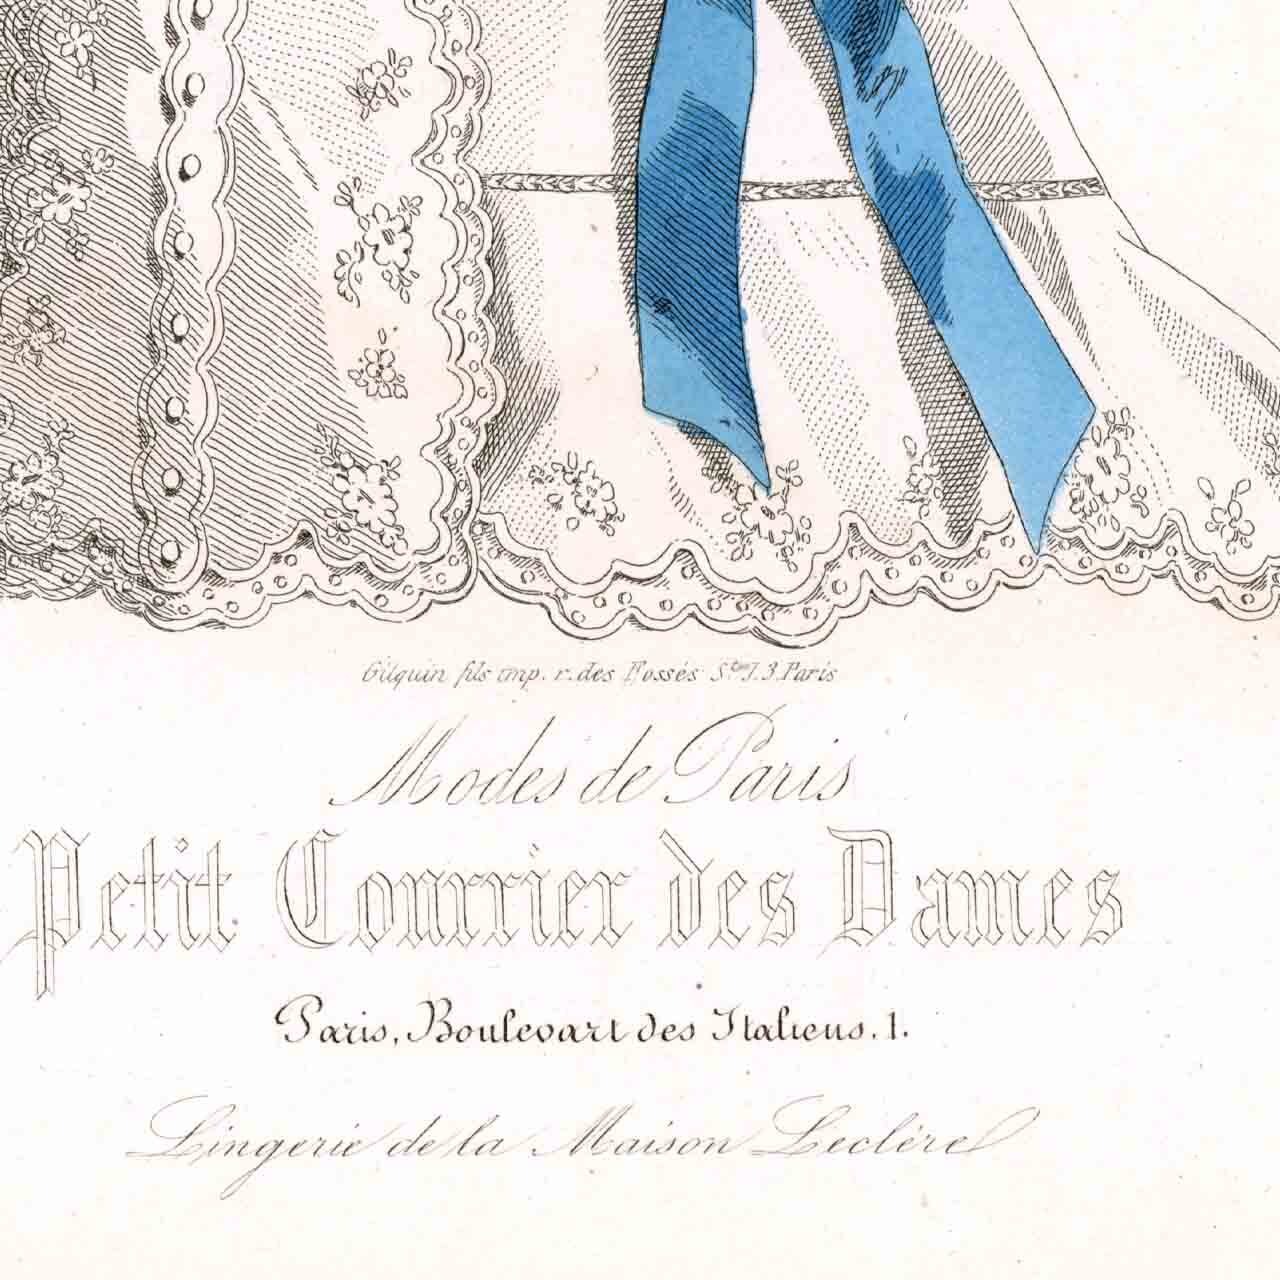 Gilquin fils imp. r. des Fossés St. J. 3. Paris
Modes de Paris
Petit Courrier des Dames
Paris, Boulevart des Italiens. 1.
Lingerie de la Maison Leclére